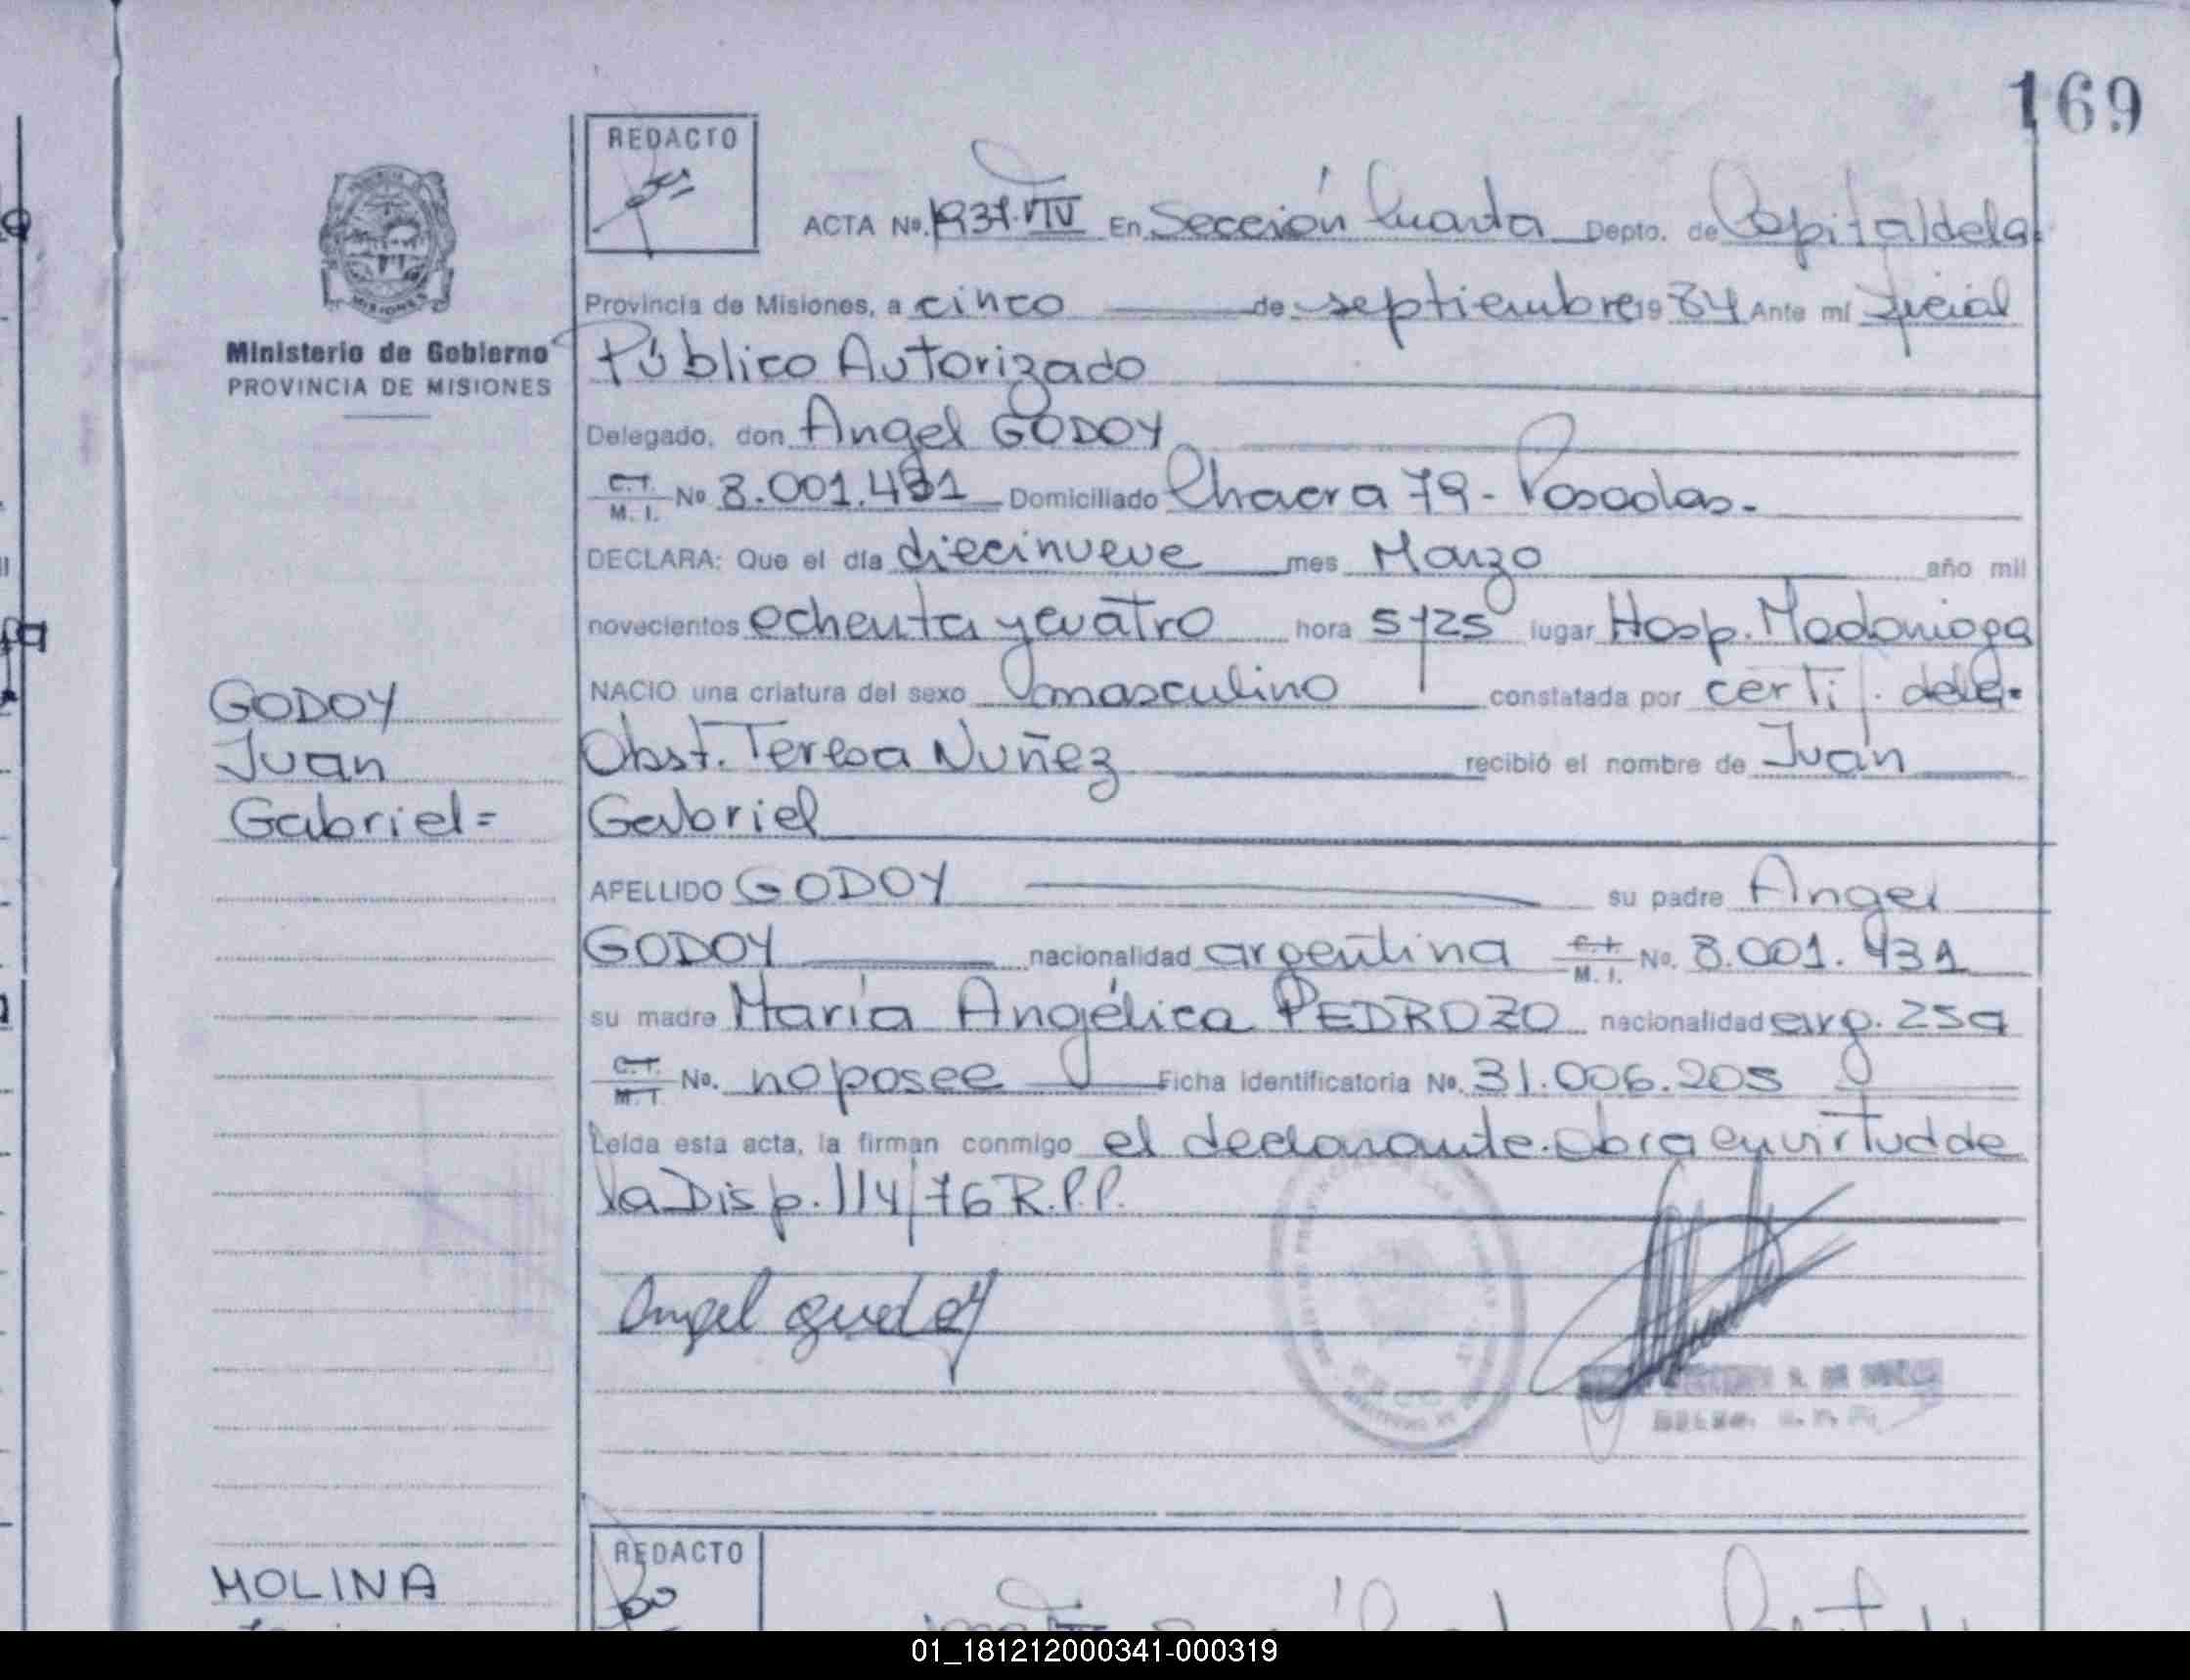 169
REDACTO
ACTA Nº. 1937. VIV En Sección Cuarta Depto. de Capital de la
Provincia de Misiones, a cinco de septiembre 19 84 Ante mí Oficial
Ministerio de Gobierno
PROVINCIA DE MISIONES
MISIONES
Público Autorizado
Delegado, don Angel GODOY
C.T. M. I. Nº 8.001.431 Domiciliado Chacra 79 - Posadas.
DECLARA: Que el día diecinueve mes Marzo año mil
novecientos ochenta y cuatro hora 5 y 25 lugar Hosp. Madariaga
NACIO una criatura del sexo masculino constatada por certif. de la
GODOY
Juan
Gabriel =
Obst. Teresa Nuñez recibió el nombre de Juan
Gabriel
APELLIDO GODOY su padre Angel
GODOY nacionalidad argentina C.I. M. I. No. 8.001.431
su madre María Angélica PEDROZO nacionalidad arg. 25a
C.T. M.I. No. no posee Ficha identificatoria No. 31.006.205
Leída esta acta, la firman conmigo el declarante. obra en virtud de
la Disp. 114/76 R.P.P.
Angel Guodoy
MOLINA
REDACTO
01_181212000341-000319